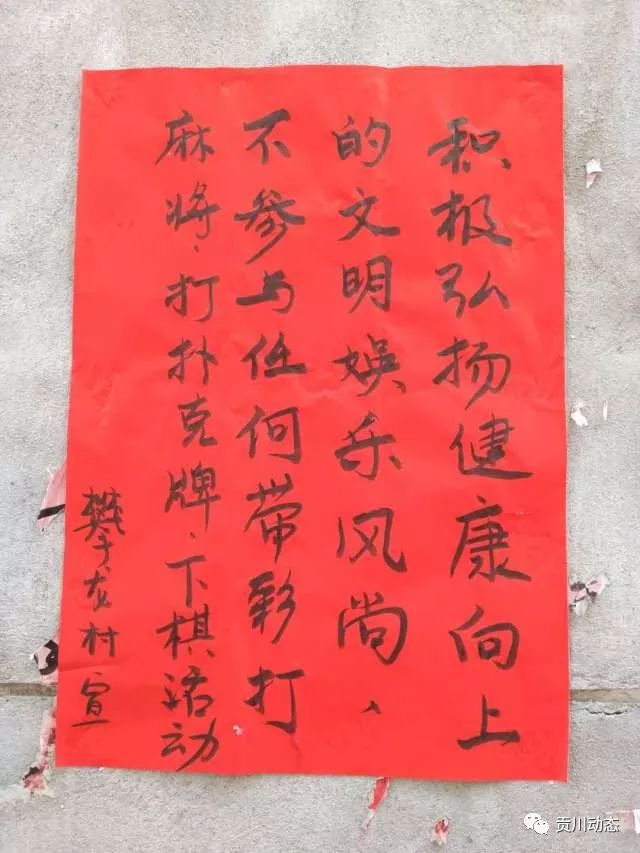 积极弘扬健康向上
的文明娱乐风尚、
不参与任何带彩打
麻将、打扑克牌、下棋活动
龙村宣
贡川动态